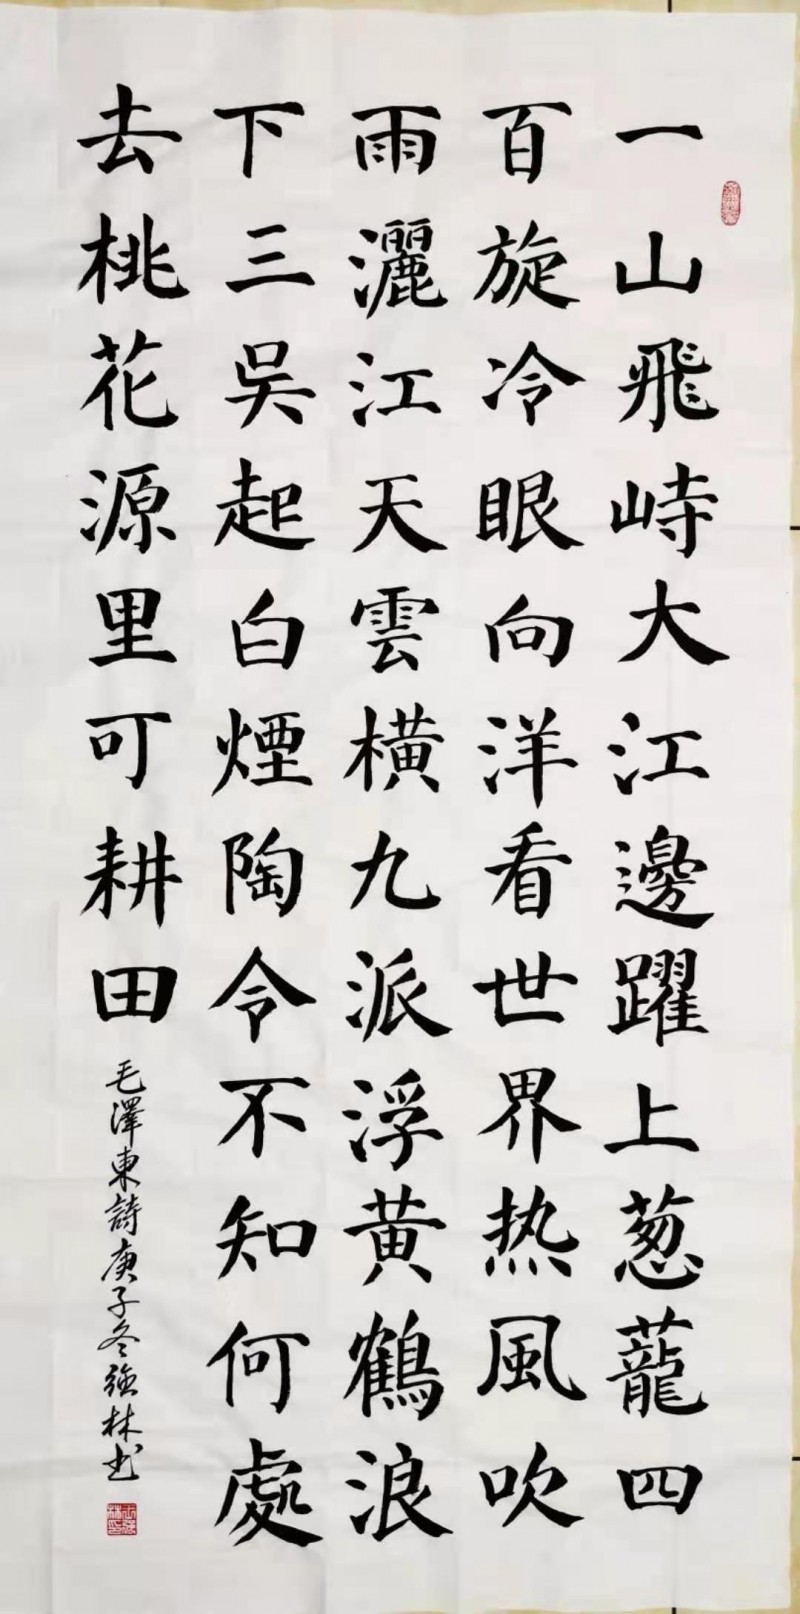 一山飛峙大江邊躍上葱蘢四
百旋冷眼向洋看世界热風吹
雨灑江天雲橫九派浮黄鶴浪
下三吳起白煙陶令不知何處
去桃花源里可耕田
毛澤東詩庚子冬強林书